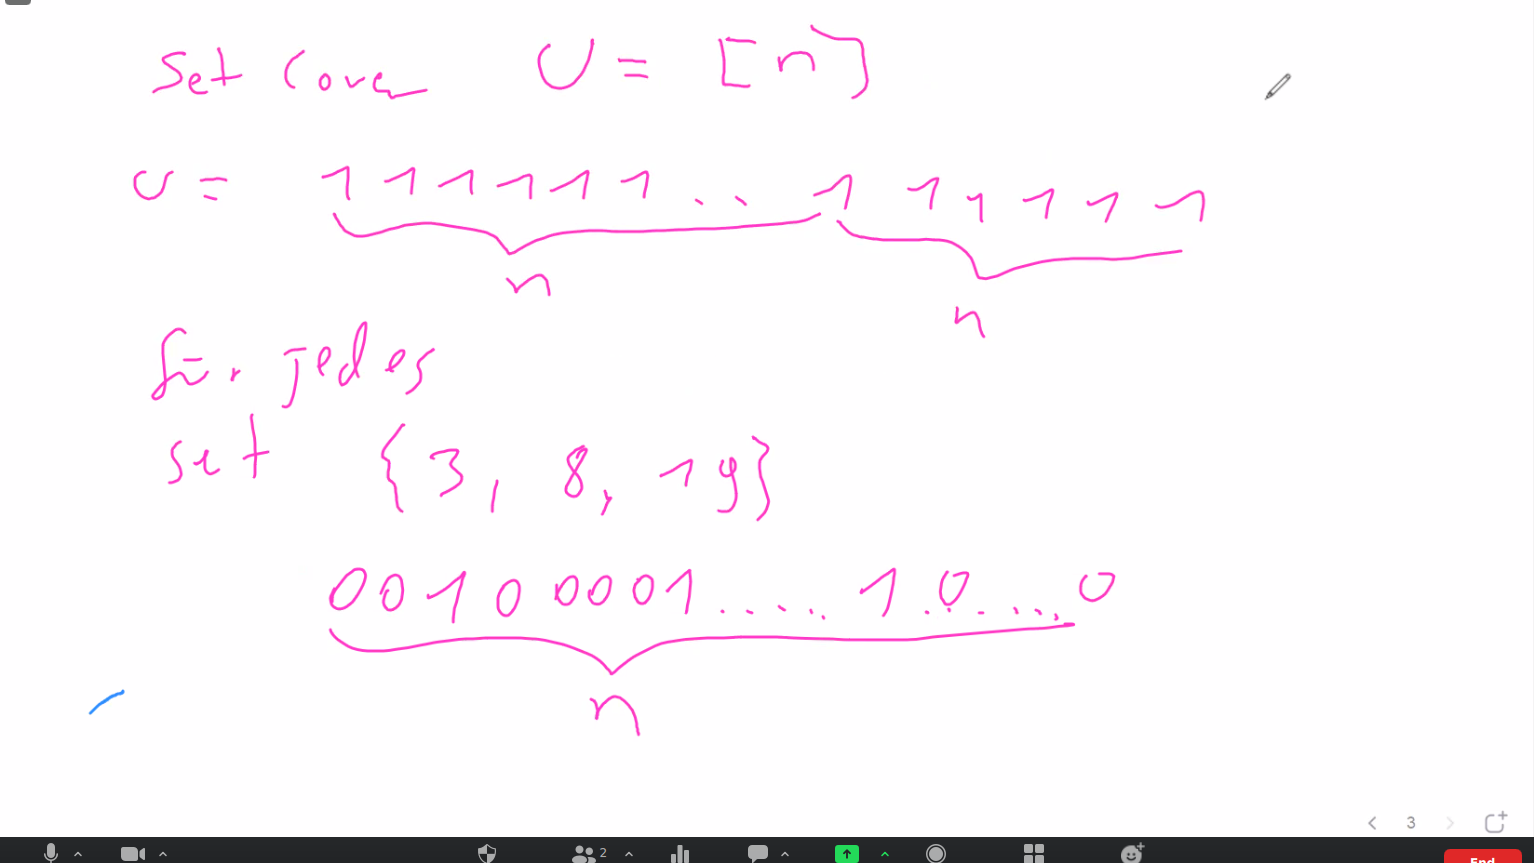 Set Cover U = [n]
U = 1 1 1 1 1 1 .. 1 1 1 1 1 1
n
n
für jedes
set {3, 8, 19}
0 0 1 0 0 0 0 1 ..... 1 0 .... 0
n
3
2
End